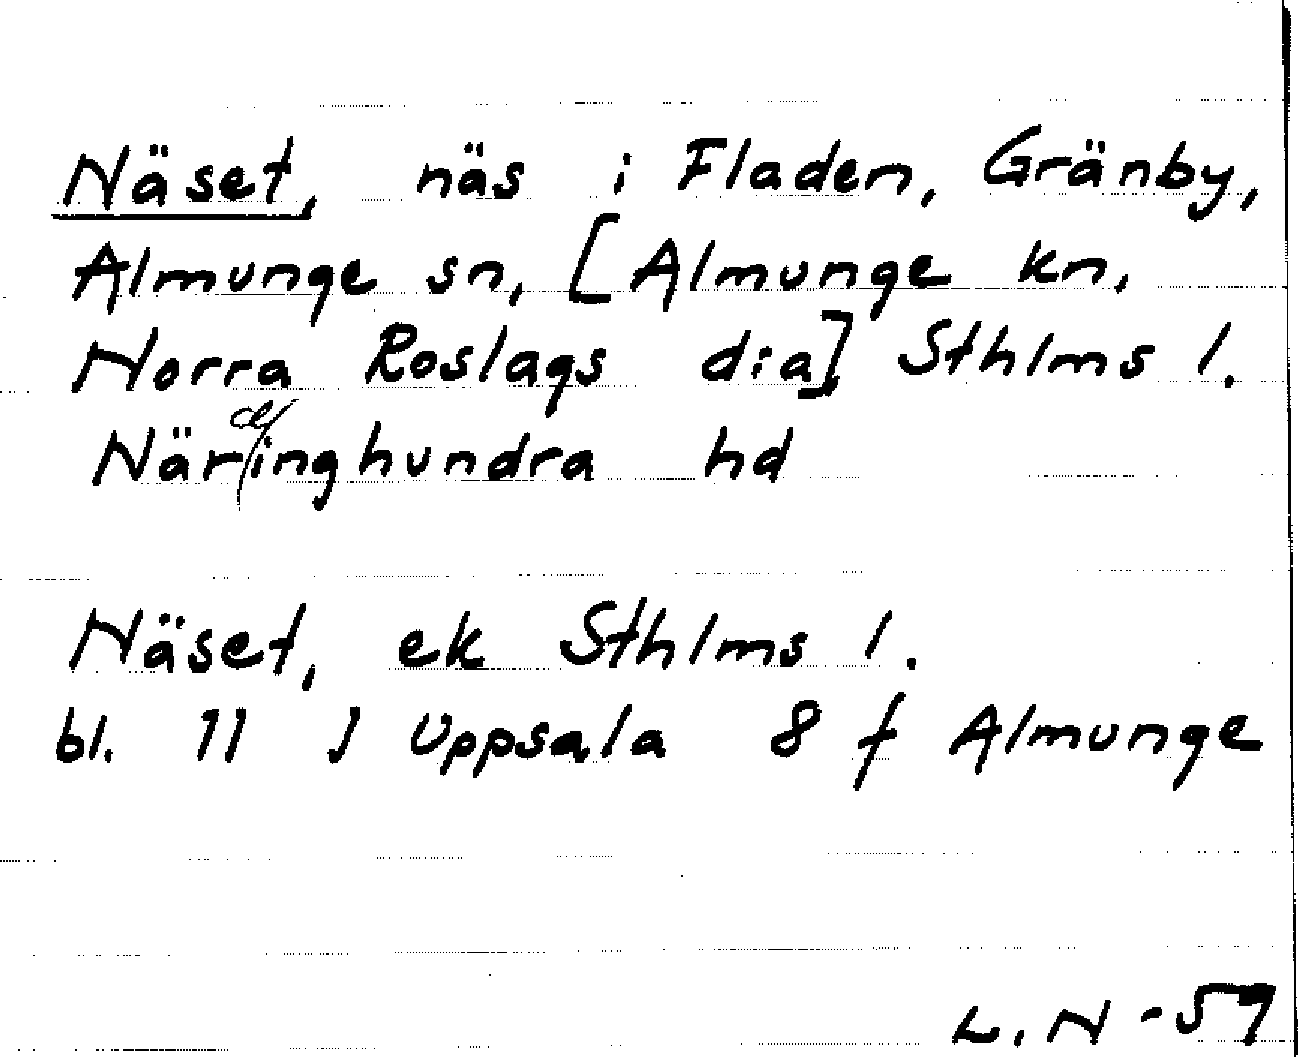 Näset, näs i Fladen, Gränby,
Almunge sn, [Almunge kn,
Norra Roslags dia] Sthlms l.
Närdinghundra hd
Näset, ek Sthlms l.
bl. 11 J Uppsala 8 f Almunge
L.N-59